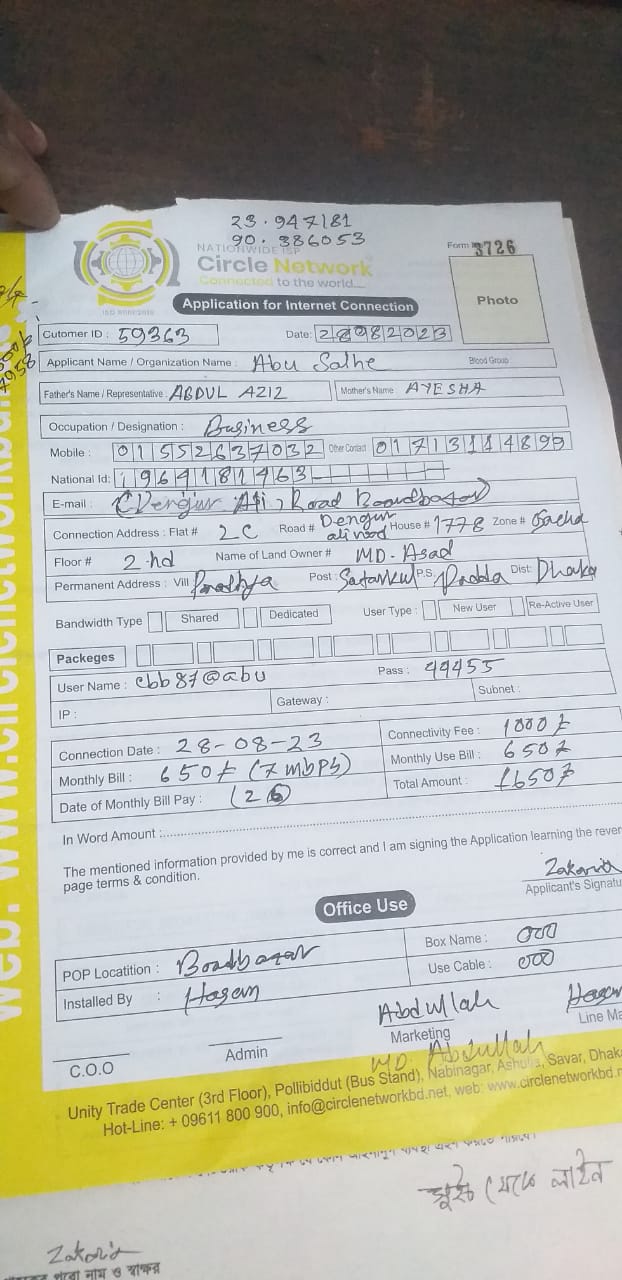 23.947181
90.386053
NATIONWIDE ISP
Circle Network
Connected to the world....
ISO 9001:2015
Form No 3726
Photo
Application for Internet Connection
Cutomer ID : 59363 Date: 28082023
Applicant Name / Organization Name : Abu Salhe Blood Group :
Father's Name / Representative : ABDUL AZIZ Mother's Name : AYESHA
Occupation / Designation : Business
Mobile : 01552637032 Other Contact 01713114899
National Id: 1964181463
E-mail : Road Boardbazar
Connection Address : Flat # 2C Road # Dengur ali road House # 1778 Zone # Gacha
Floor # 2nd Name of Land Owner # MD. Asad
Permanent Address : Vill Post : Satarkul P.S, Badda Dist: Dhaka
Bandwidth Type Shared Dedicated User Type : New User Re-Active User
Packeges
User Name : cbb87@abu Pass : 49455
IP : Gateway : Subnet :
Connection Date : 28-08-23 Connectivity Fee : 1000/-
Monthly Bill : 650/- (7 mbps) Monthly Use Bill : 650/-
Date of Monthly Bill Pay : Total Amount : 1650/-
In Word Amount :
The mentioned information provided by me is correct and I am signing the Application learning the rever
page terms & condition.
Zakaria
Applicant's Signatu
Office Use
POP Locatition : Boardbazar Box Name : 000
Installed By : Hasan Use Cable : 000
Abdullah Hasan
C.O.O Admin Marketing Line Ma
MD. Abdullah
Unity Trade Center (3rd Floor), Pollibiddut (Bus Stand), Nabinagar, Ashulia, Savar, Dhak
Hot-Line: + 09611 800 900, info@circlenetworkbd.net, web: www.circlenetworkbd.n
থেকে লাইন
Zakaria
নাম ও স্বাক্ষর